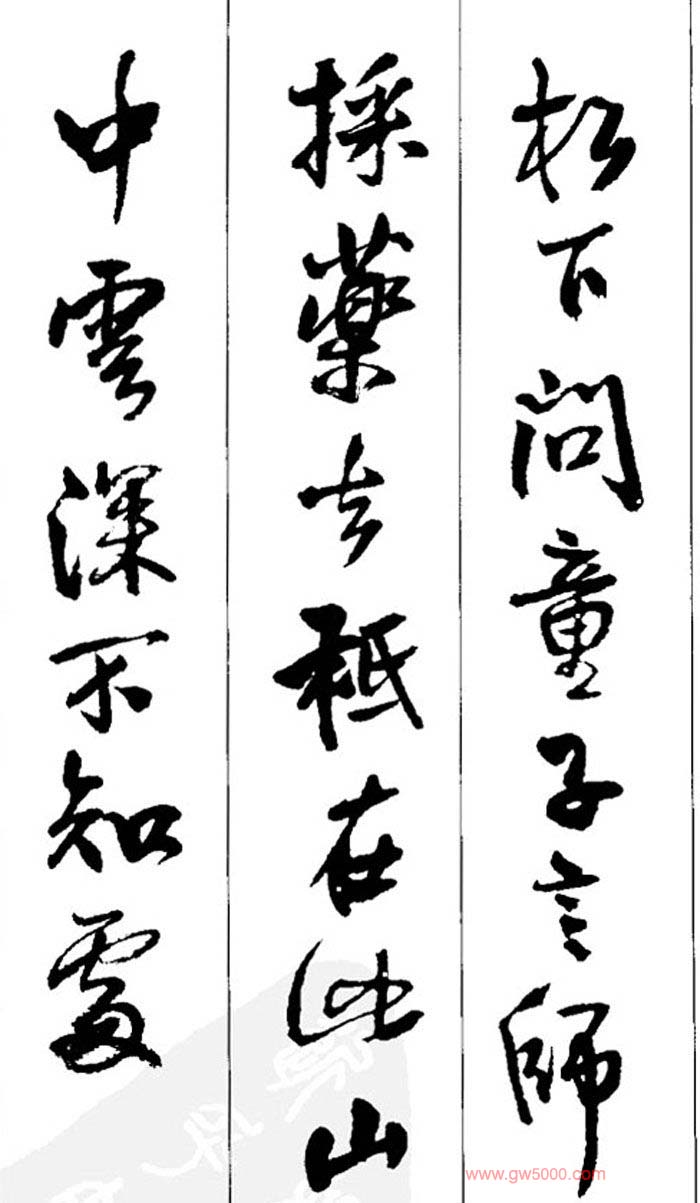 松下問童子言師
採藥去秖在此山
中雲深不知處
www.gw5000.com